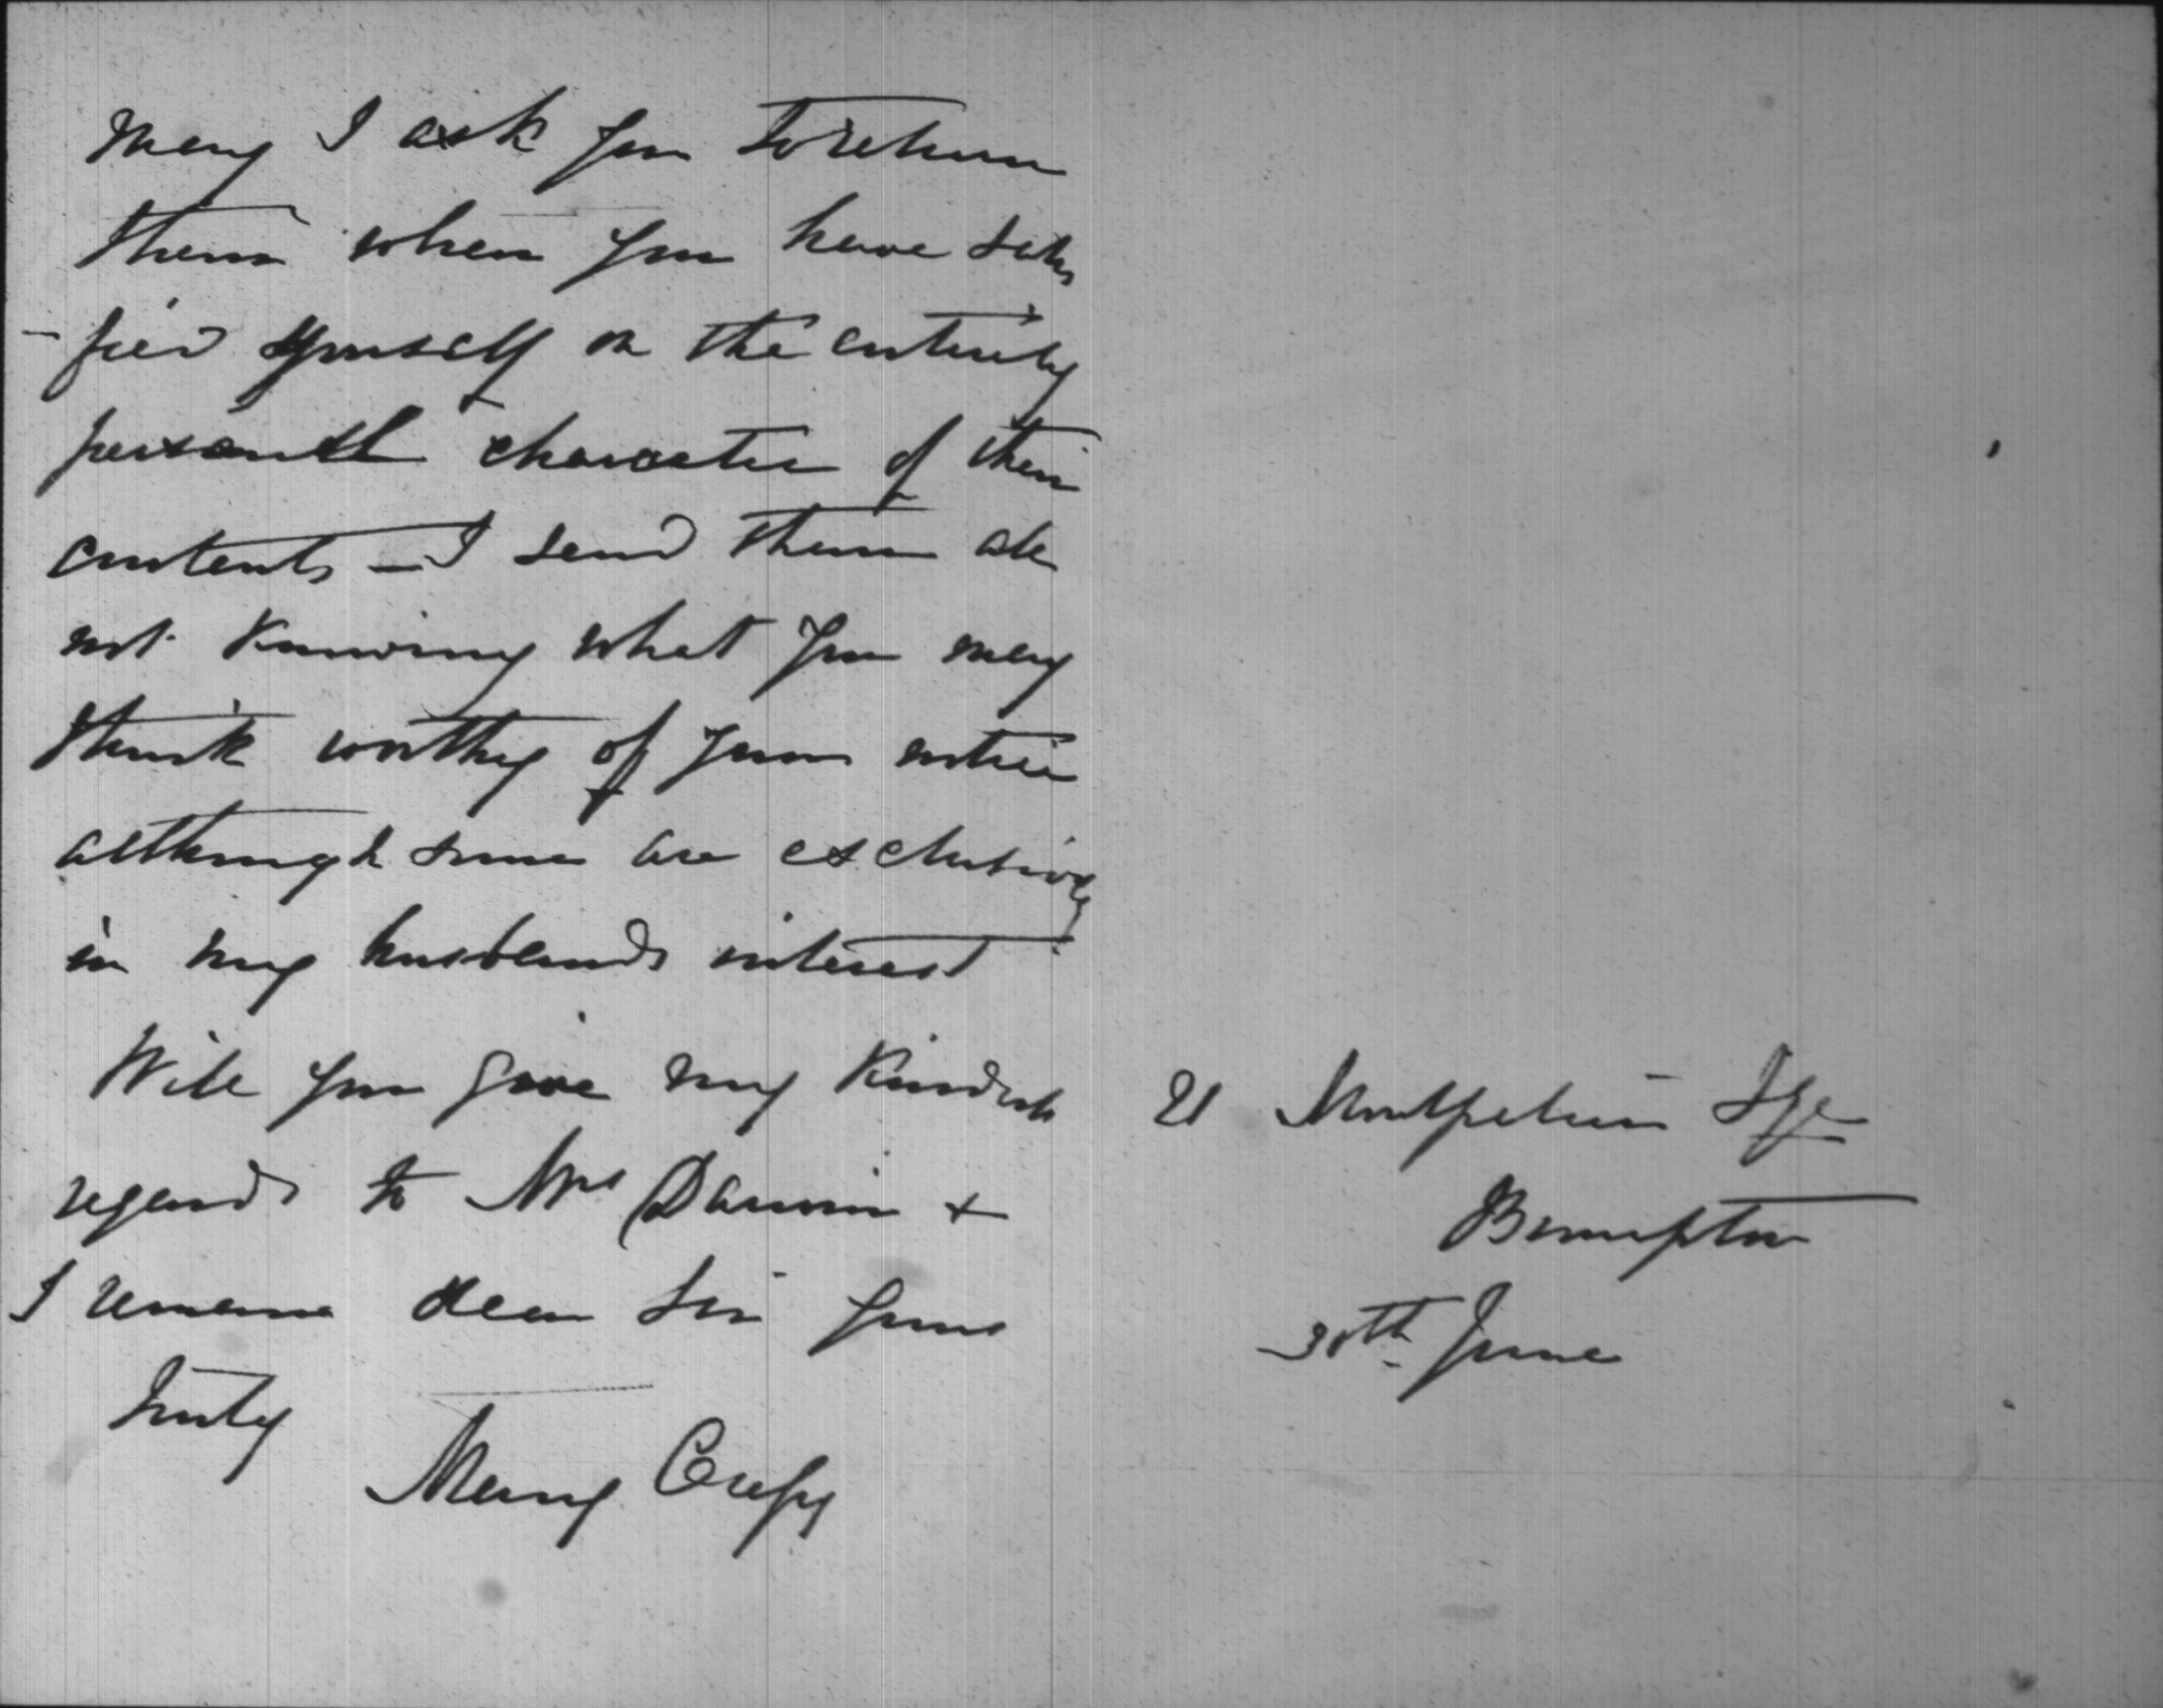 May I ask you to return
them when you have satis
-fied yourself on the entirely
personal character of their
contents – I send them all
not knowing what you may
think worthy of your notice
although some are exclusively
in my husbands interest
Will you give my kindest
regards to Mrs Darwin +
I remain dear Sir yours
truly
Mary
21 Montpelier Sqe
Brompton
30th June